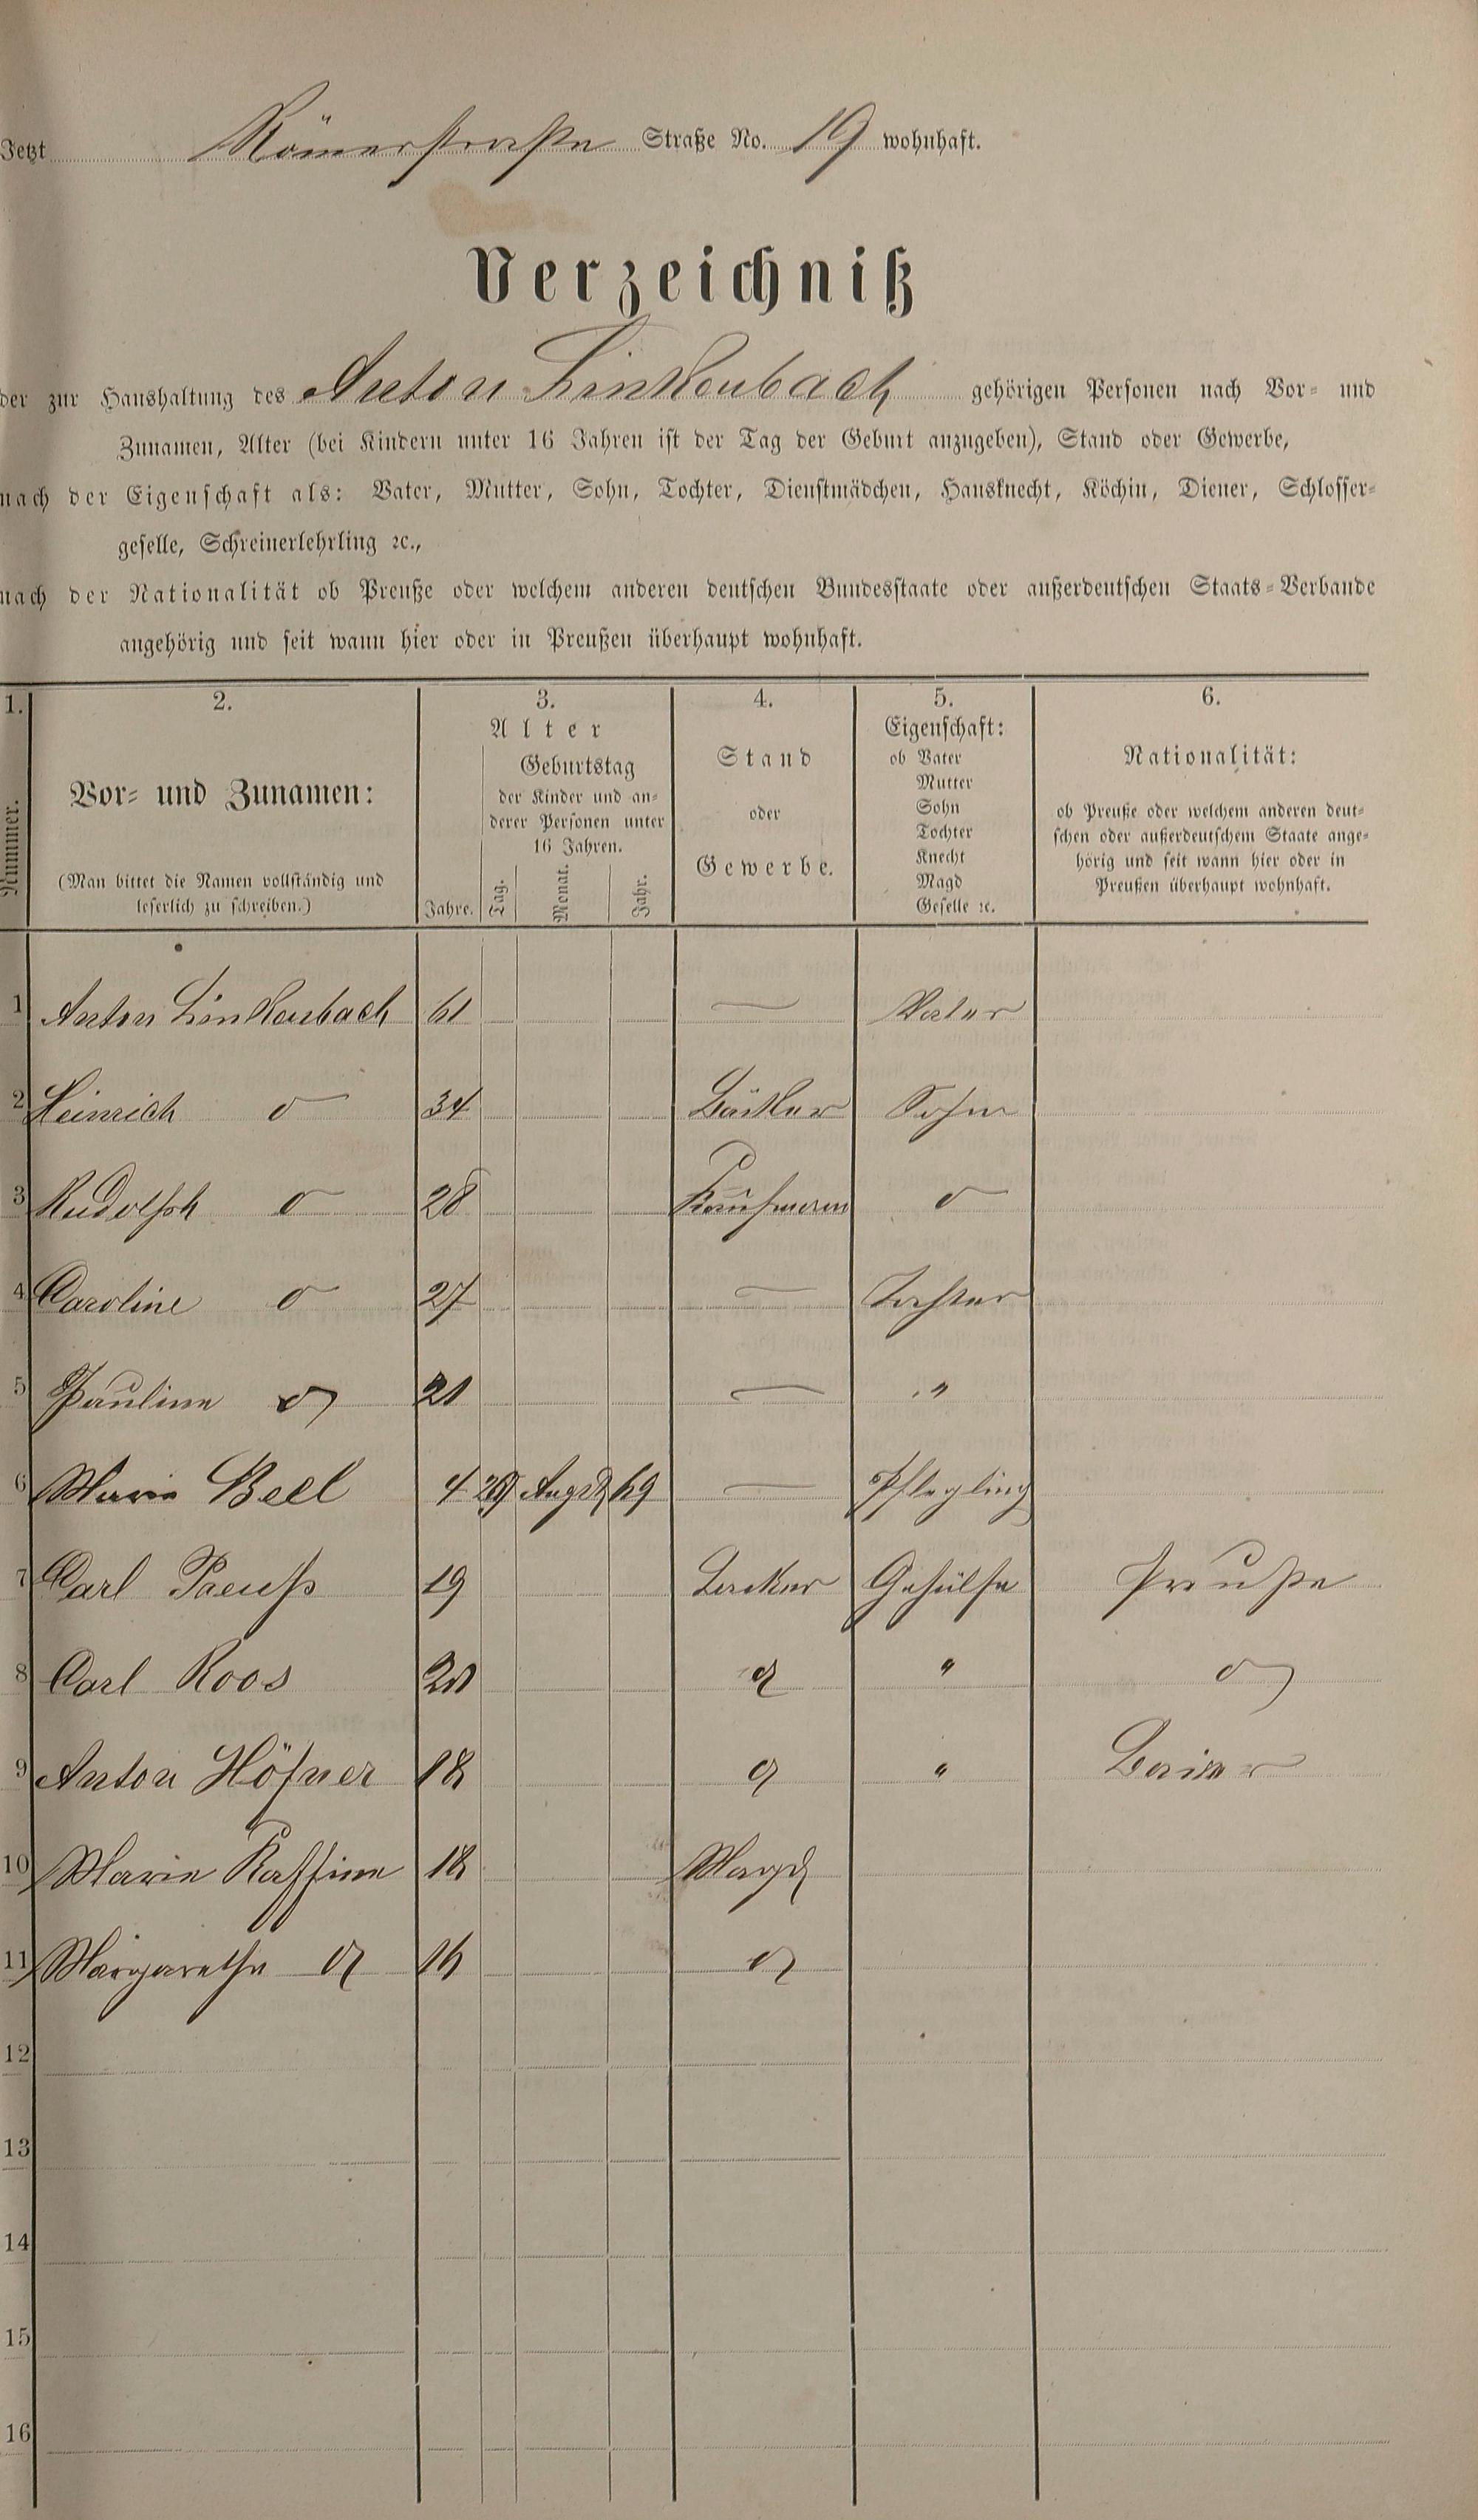 Jetzt Römerstraße Straße No. 19 wohnhaft.
Verzeichniß
der zur Haushaltung des Anton Linkenbach gehörigen Personen nach Vor- und
Zunamen, Alter (bei Kindern unter 16 Jahren ist der Tag der Geburt anzugeben), Stand oder Gewerbe,
nach der Eigenschaft als: Vater, Mutter, Sohn, Tochter, Dienstmädchen, Hausknecht, Köchin, Diener, Schlosser-
geselle, Schreinerlehrling ꝛc.,
nach der Nationalität ob Preuße oder welchem anderen deutschen Bundesstaate oder außerdeutschen Staats-Verbande
angehörig und seit wann hier oder in Preußen überhaupt wohnhaft.
1.
Nummer.
2.
Vor- und Zunamen:
(Man bittet die Namen vollständig und
leserlich zu schreiben.)
3.
Alter
Geburtstag
der Kinder und an-
derer Personen unter
16 Jahren.
Jahre. Tag. Monat. Jahr.
4.
Stand
oder
Gewerbe.
5.
Eigenschaft:
ob Vater
Mutter
Sohn
Tochter
Knecht
Magd
Geselle ꝛc.
6.
Nationalität:
ob Preuße oder welchem anderen deut-
schen oder außerdeutschem Staate ange-
hörig und seit wann hier oder in
Preußen überhaupt wohnhaft.
1 Anton Linkenbach 61 — Vater
2 Heinrich d 34 Bäcker Sohn
3 Rudolph d 28 Kaufmann d
4 Caroline d 27 — Tochter
5 Pauline d 21 — "
6 Marie Beel 4 Augst 69 — Pflegling
7 Carl 19 Becker Gehülfe Preuße
8 Carl Roos 20 d " d
9 Anton Höfner 18 d " Baier
10 Marie 18 Magd
11 Margarethe d 16 d
12
13
14
15
16